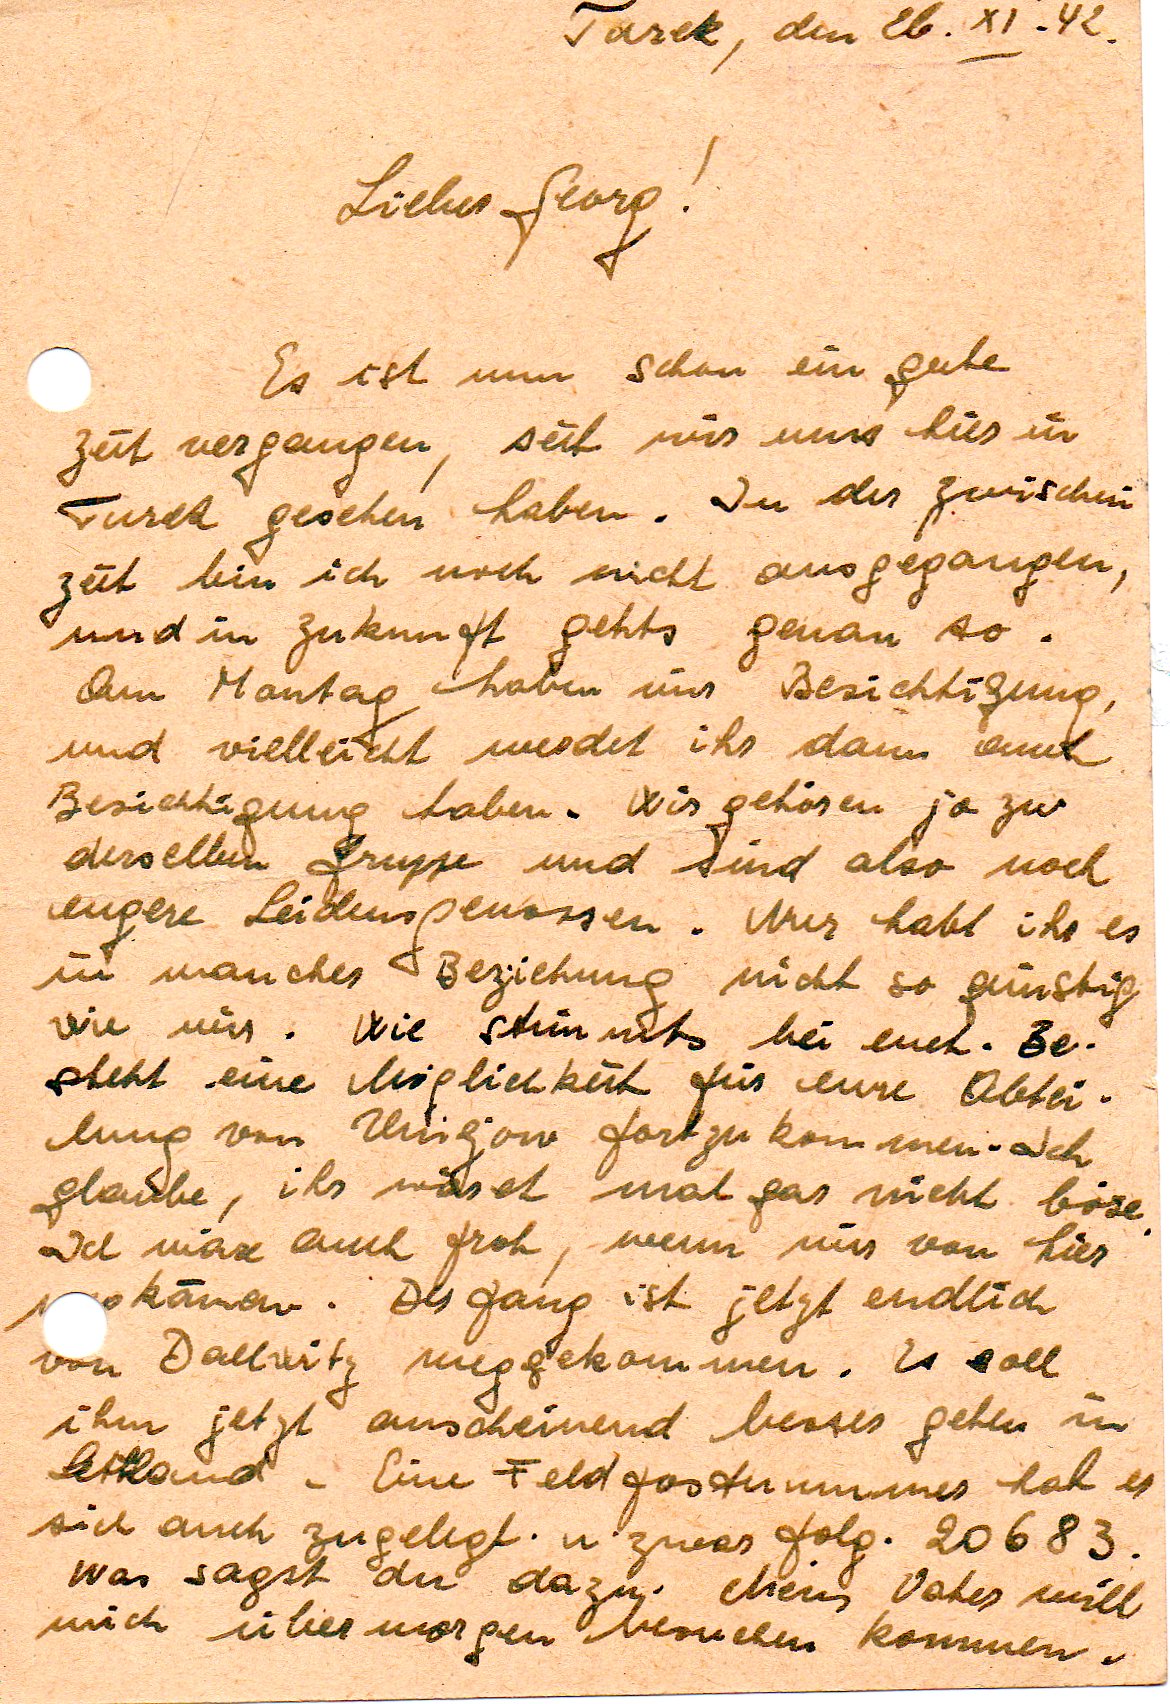 Turek, den 26. XI. 42.
Lieber Georg!
Es ist nun schon ein gute
Zeit vergangen, seit wir uns hier in
Turek gesehen haben. In der Zwischen
zeit bin ich noch nicht ausgegangen,
und in Zukunft gehts genau so.
Am Montag haben wir Besichtigung,
und vielleicht werdet ihr dann auch
Besichtigung haben. Wir gehören ja zu
derselben Gruppe und sind also noch
engere Leidensgenossen. Nur habt ihr es
in mancher Beziehung nicht so günstig
wie wir. Wie stimmts bei euch. Be-
steht eine Möglichkeit für eure Abtei-
lung von Uniejow fortzukommen. Ich
glaube, ihr wäret mal gar nicht böse.
Ich wäre auch froh, wenn wir von hier
wegkämen. Der Fang ist jetzt endlich
von Dallwitz weggekommen. Es soll
ihm jetzt anscheinend besser gehen in
Lettland. Eine Feldpostnummer hat er
sich auch zugelegt. u. zwar folg. 20683.
Was sagst du dazu. Mein Vater will
mich übermorgen besuchen kommen.